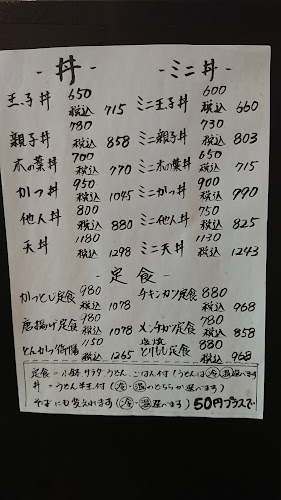 - 丼 -
玉子丼 650 税込 715
親子丼 780 税込 858
木の葉丼 700 税込 770
かつ丼 950 税込 1045
他人丼 800 税込 880
天丼 1180 税込 1298
- ミニ丼 -
ミニ玉子丼 600 税込 660
ミニ親子丼 730 税込 803
ミニ木の葉丼 650 税込 715
ミニかつ丼 900 税込 990
ミニ他人丼 750 税込 825
ミニ天丼 1130 税込 1243
- 定食 -
かつとじ定食 980 税込 1078
唐揚げ定食 980 税込 1078
とんかつ御膳 1150 税込 1265
チキンカツ定食 880 税込 968
メンチカツ定食 780 税込 858
塩焼とりもし定食 880 税込 968
定食 - 小鉢 サラダ うどん、ごはん付 (うどんは冷温選べます)
丼 - うどん半玉付 (冷・温のどちらか選べます)
そばにも変えれます (冷・温選べます) 50円プラスで